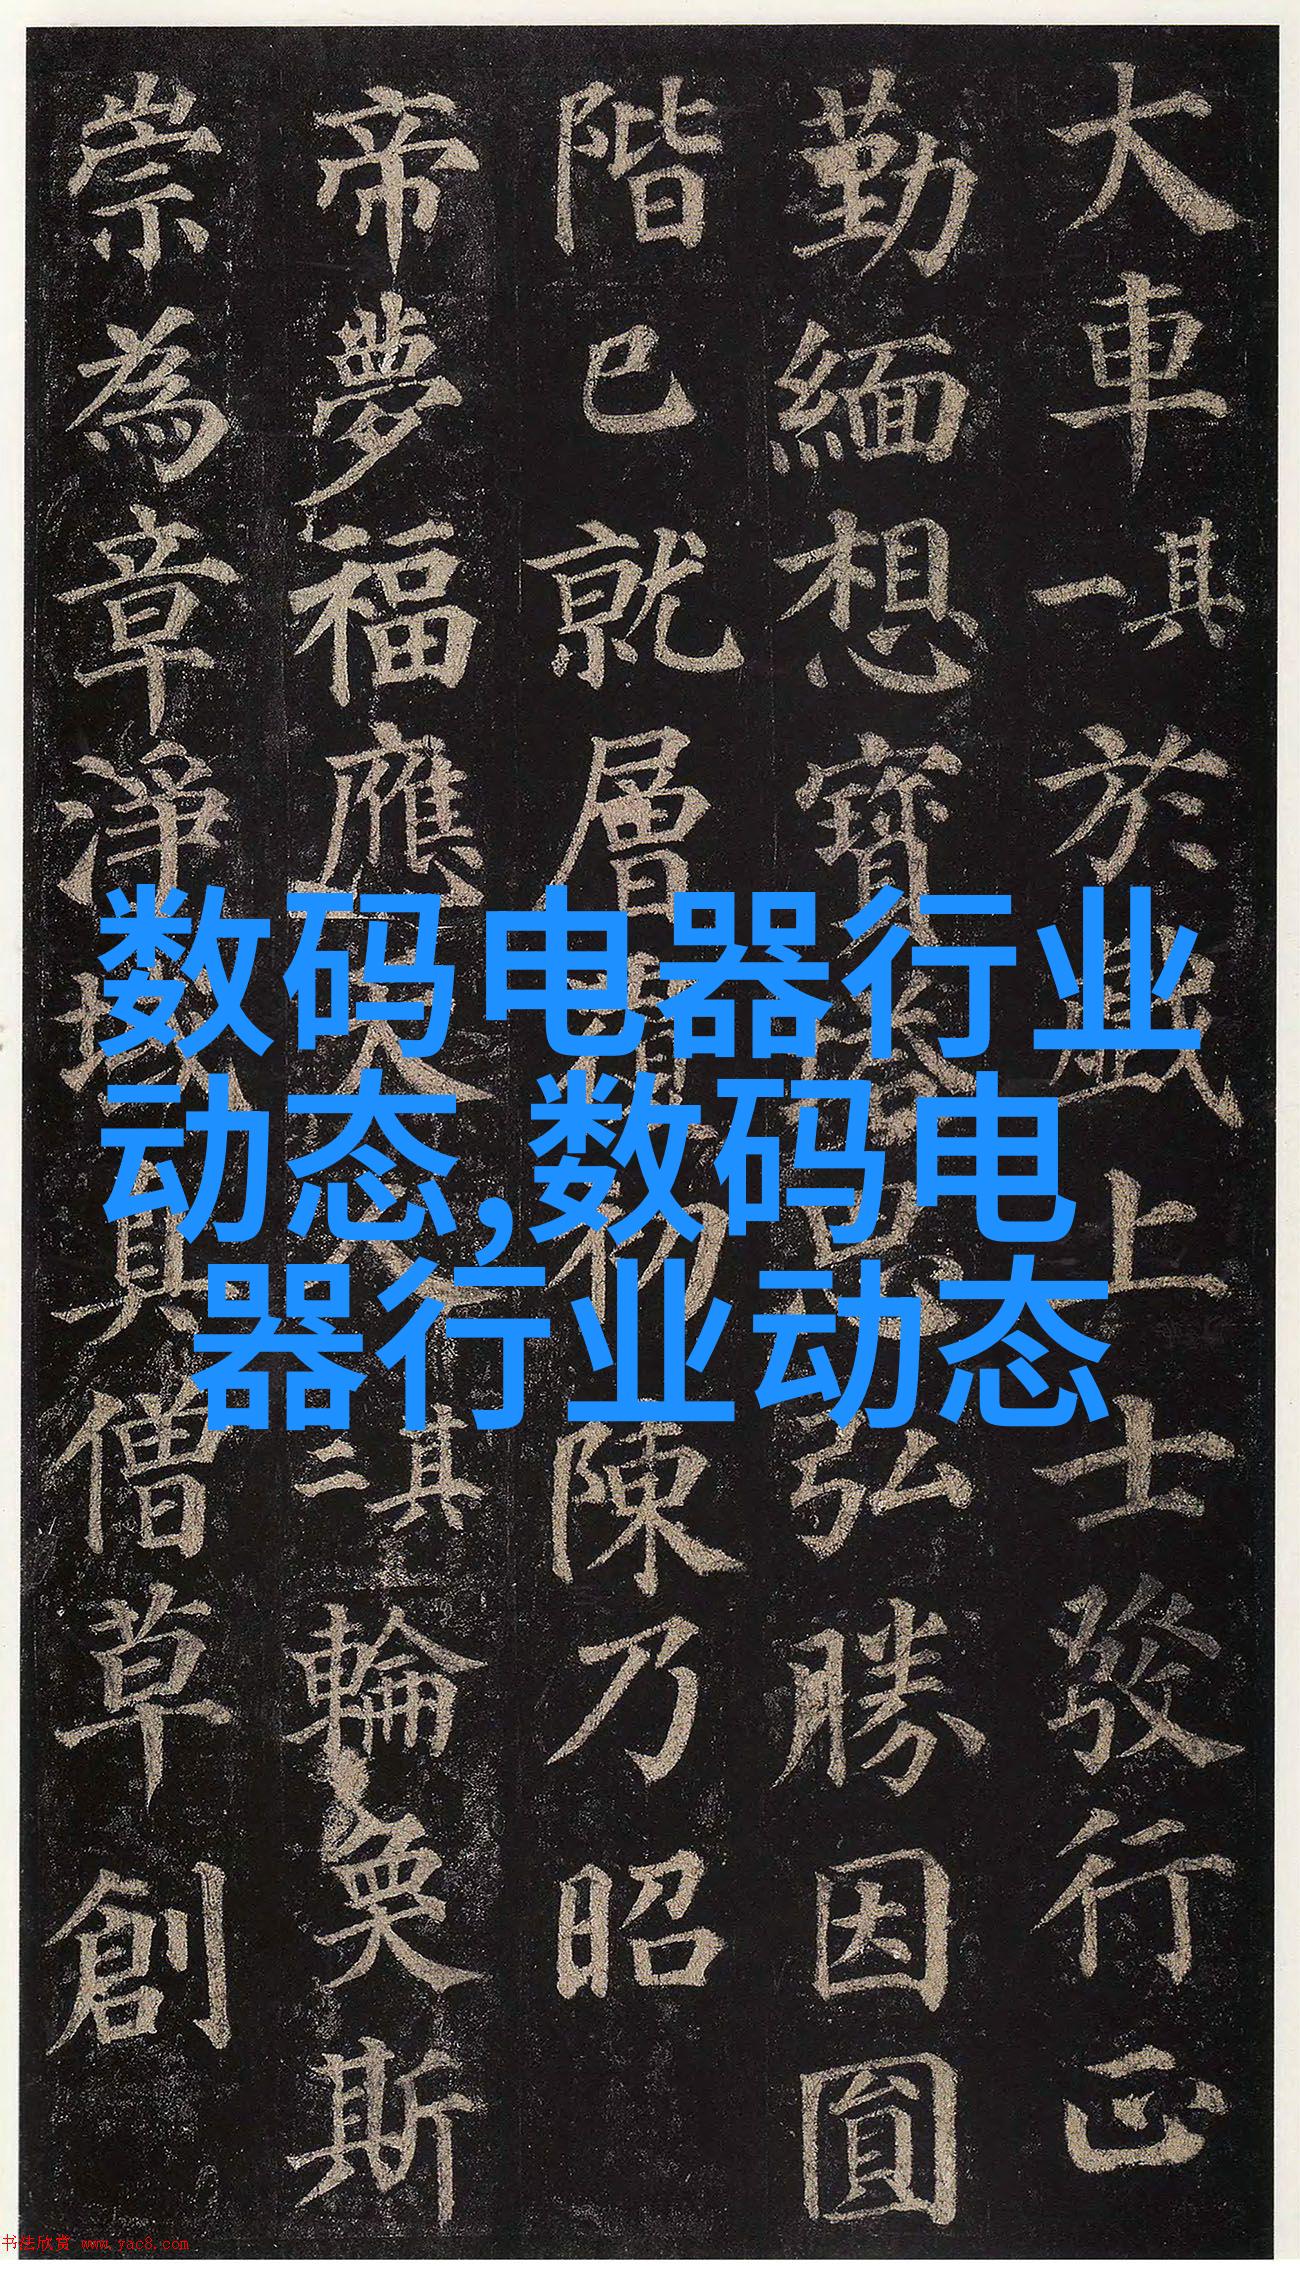 大車其一於戲上士發行正
勤緬想寶塔思弘勝因圓
階已就層初陳乃昭
帝夢福應天人其二輪奐斯
崇為章淨域真僧草創
数码电器行业
动态,数码电
器行业动态
书法欣赏 www.yac8.com